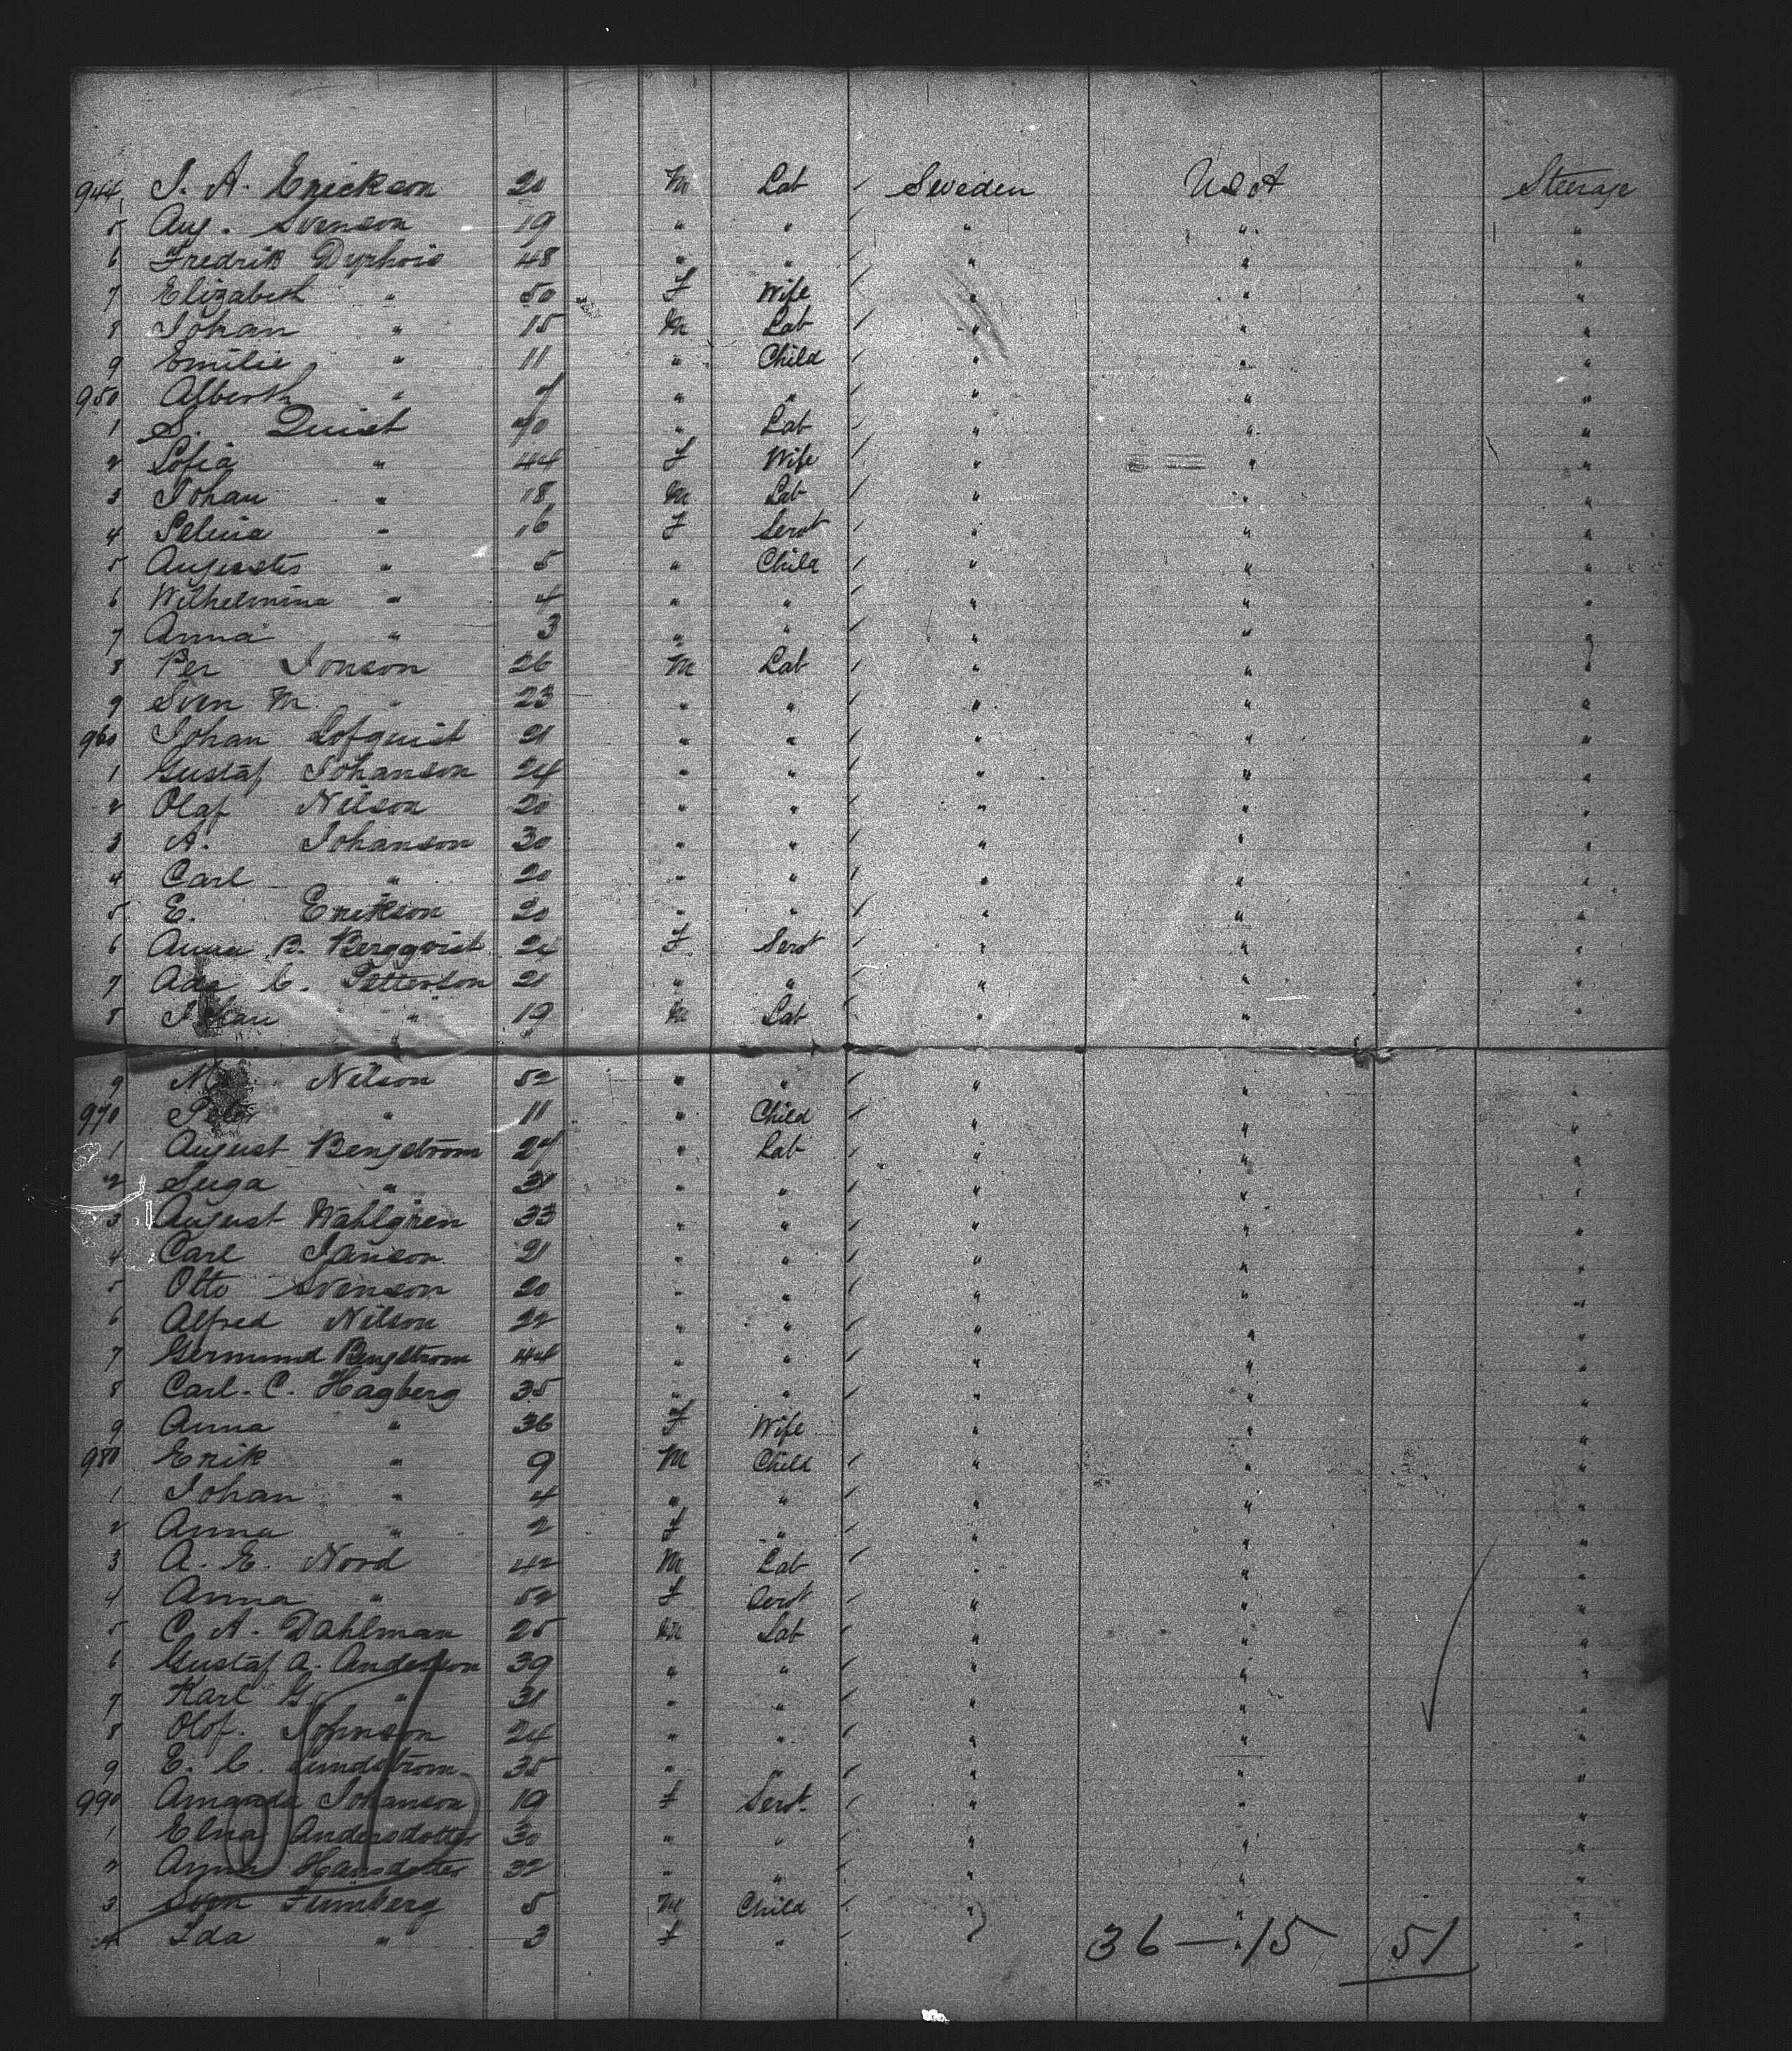 944 J. A. Erickson 20 M Lab Sweden U S A Steerage
5 Aug. Svenson 19 " " " " "
6 Fredrik 48 " " " " "
7 Elizabeth " 50 F Wife " " "
8 Johan " 15 M Lab " " "
9 Emilie " 11 " Child " " "
950 Alberth " " " " " "
1 S. Quist 40 " Lab " " "
2 Sofia " 44 F Wife " " "
3 Johan " 18 M Lab " " "
4 " 16 F Servt " " "
5 " 5 " Child " " "
6 Wilhelmina " 4 " " " " "
7 Anna " 3 " " " " "
8 Per Jonson 26 M Lab " " "
9 Sven M. " 23 " " " " "
960 Johan Lofquist 21 " " " " "
1 Gustaf Johanson 24 " " " " "
2 Olaf Nilson 20 " " " " "
3 A. Johanson 30 " " " " "
4 Carl " 20 " " " " "
5 E. Erikson 20 " " " " "
6 Anna B. Bergqvist F Servt " " "
7 Ada C. Petterson 21 " " " " "
8 Johan " 19 M Lab " " "
9 Nilson 52 " " " " "
970 " 11 " Child " " "
1 August Bengstrom 27 " Lab " " "
2 " 31 " " " " "
3 August Wahlgren 33 " " " " "
4 Carl Janson 21 " " " " "
5 Otto Svenson 20 " " " " "
6 Alfred Nilson 22 " " " " "
7 Germund Bengstrom 44 " " " " "
8 Carl. C. Hagberg 35 " " " " "
9 Anna " 36 F Wife " " "
980 Erik " 9 M Child " " "
1 Johan " 4 " " " " "
2 Anna " 2 F " " " "
3 A. E. Nord 42 M Lab " " "
4 Anna " 52 F Servt " " "
5 C. A. Dahlman 25 M Lab " " "
6 Gustaf A. Anderson 39 " " " " "
7 Karl G. " 31 " " " " "
8 Olof. Johnson 24 " " " " "
9 E. C. Lundstrom 35 " " " " "
990 Amanda Johanson 19 F Servt. " " "
1 Elna Andersdotter 30 " " " " "
2 Anna Hansdotter 32 " " " " "
3 Sven 5 M Child " " "
4 Ida " 3 F " " 36 — 15 51 "